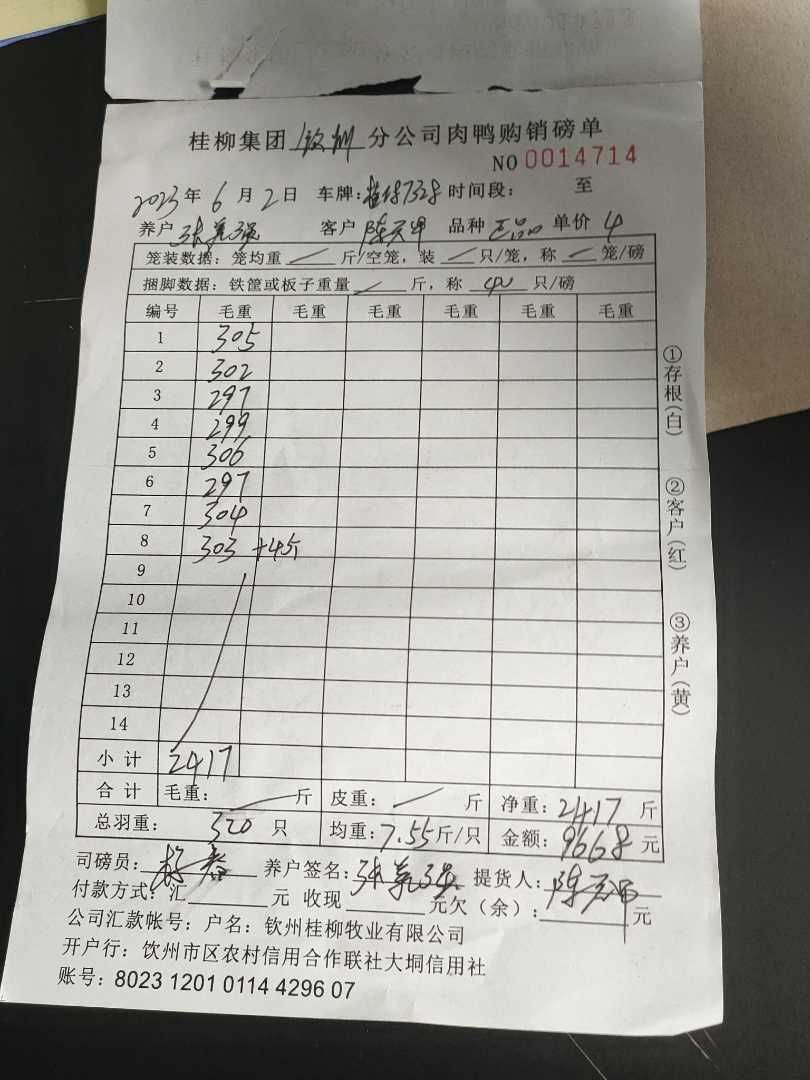 桂柳集团 钦州 分公司肉鸭购销磅单
NO 0014714
2023年 6月 2日 车牌: 桂 7328 时间段: 至
养户 张美强 客户 陈 品种 正品 单价 4
笼装数据: 笼均重 / 斤/空笼, 装 / 只/笼, 称 / 笼/磅
捆脚数据: 铁筐或板子重量 / 斤, 称 40 只/磅
编号 毛重 毛重 毛重 毛重 毛重 毛重
1 305
2 302
3 297
4 299
5 306
6 297
7 304
8 303 +4斤
9
10
11
12
13
14
小计 2417
合计 毛重: / 斤 皮重: / 斤 净重: 2417 斤
总羽重: 320 只 均重: 7.55斤/只 金额: 9668 元
司磅员: 养户签名: 张美强 提货人: 陈
付款方式: 汇 元 收现 元欠（余）: 元
公司汇款帐号: 户名: 钦州桂柳牧业有限公司
开户行: 饮州市区农村信用合作联社大垌信用社
账号: 8023 1201 0114 4296 07
①存根(白)
②客户(红)
③养户(黄)